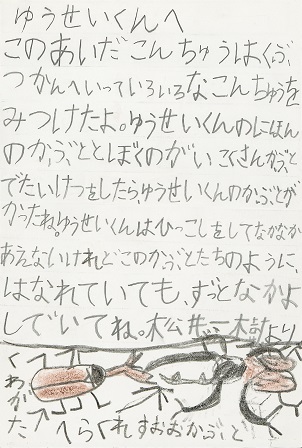 ゆうせいくんへ
このあいだこんちゅうはくぶ
つかんへいっていろいろなこんちゅうを
みつけたよ。ゆうせいくんのにほん
のかぶととぼくのがいこくさんかぶと
でたいけつをしたら、ゆうせいくんのかぶとが
かったね。ゆうせいくんはひっこしをしてなかなか
あえないけれどこのかぶとたちのように、
はなれていても、ずっとなかよ
しでいてね。松井一樹より
くわがた
へらくれすおおかぶと